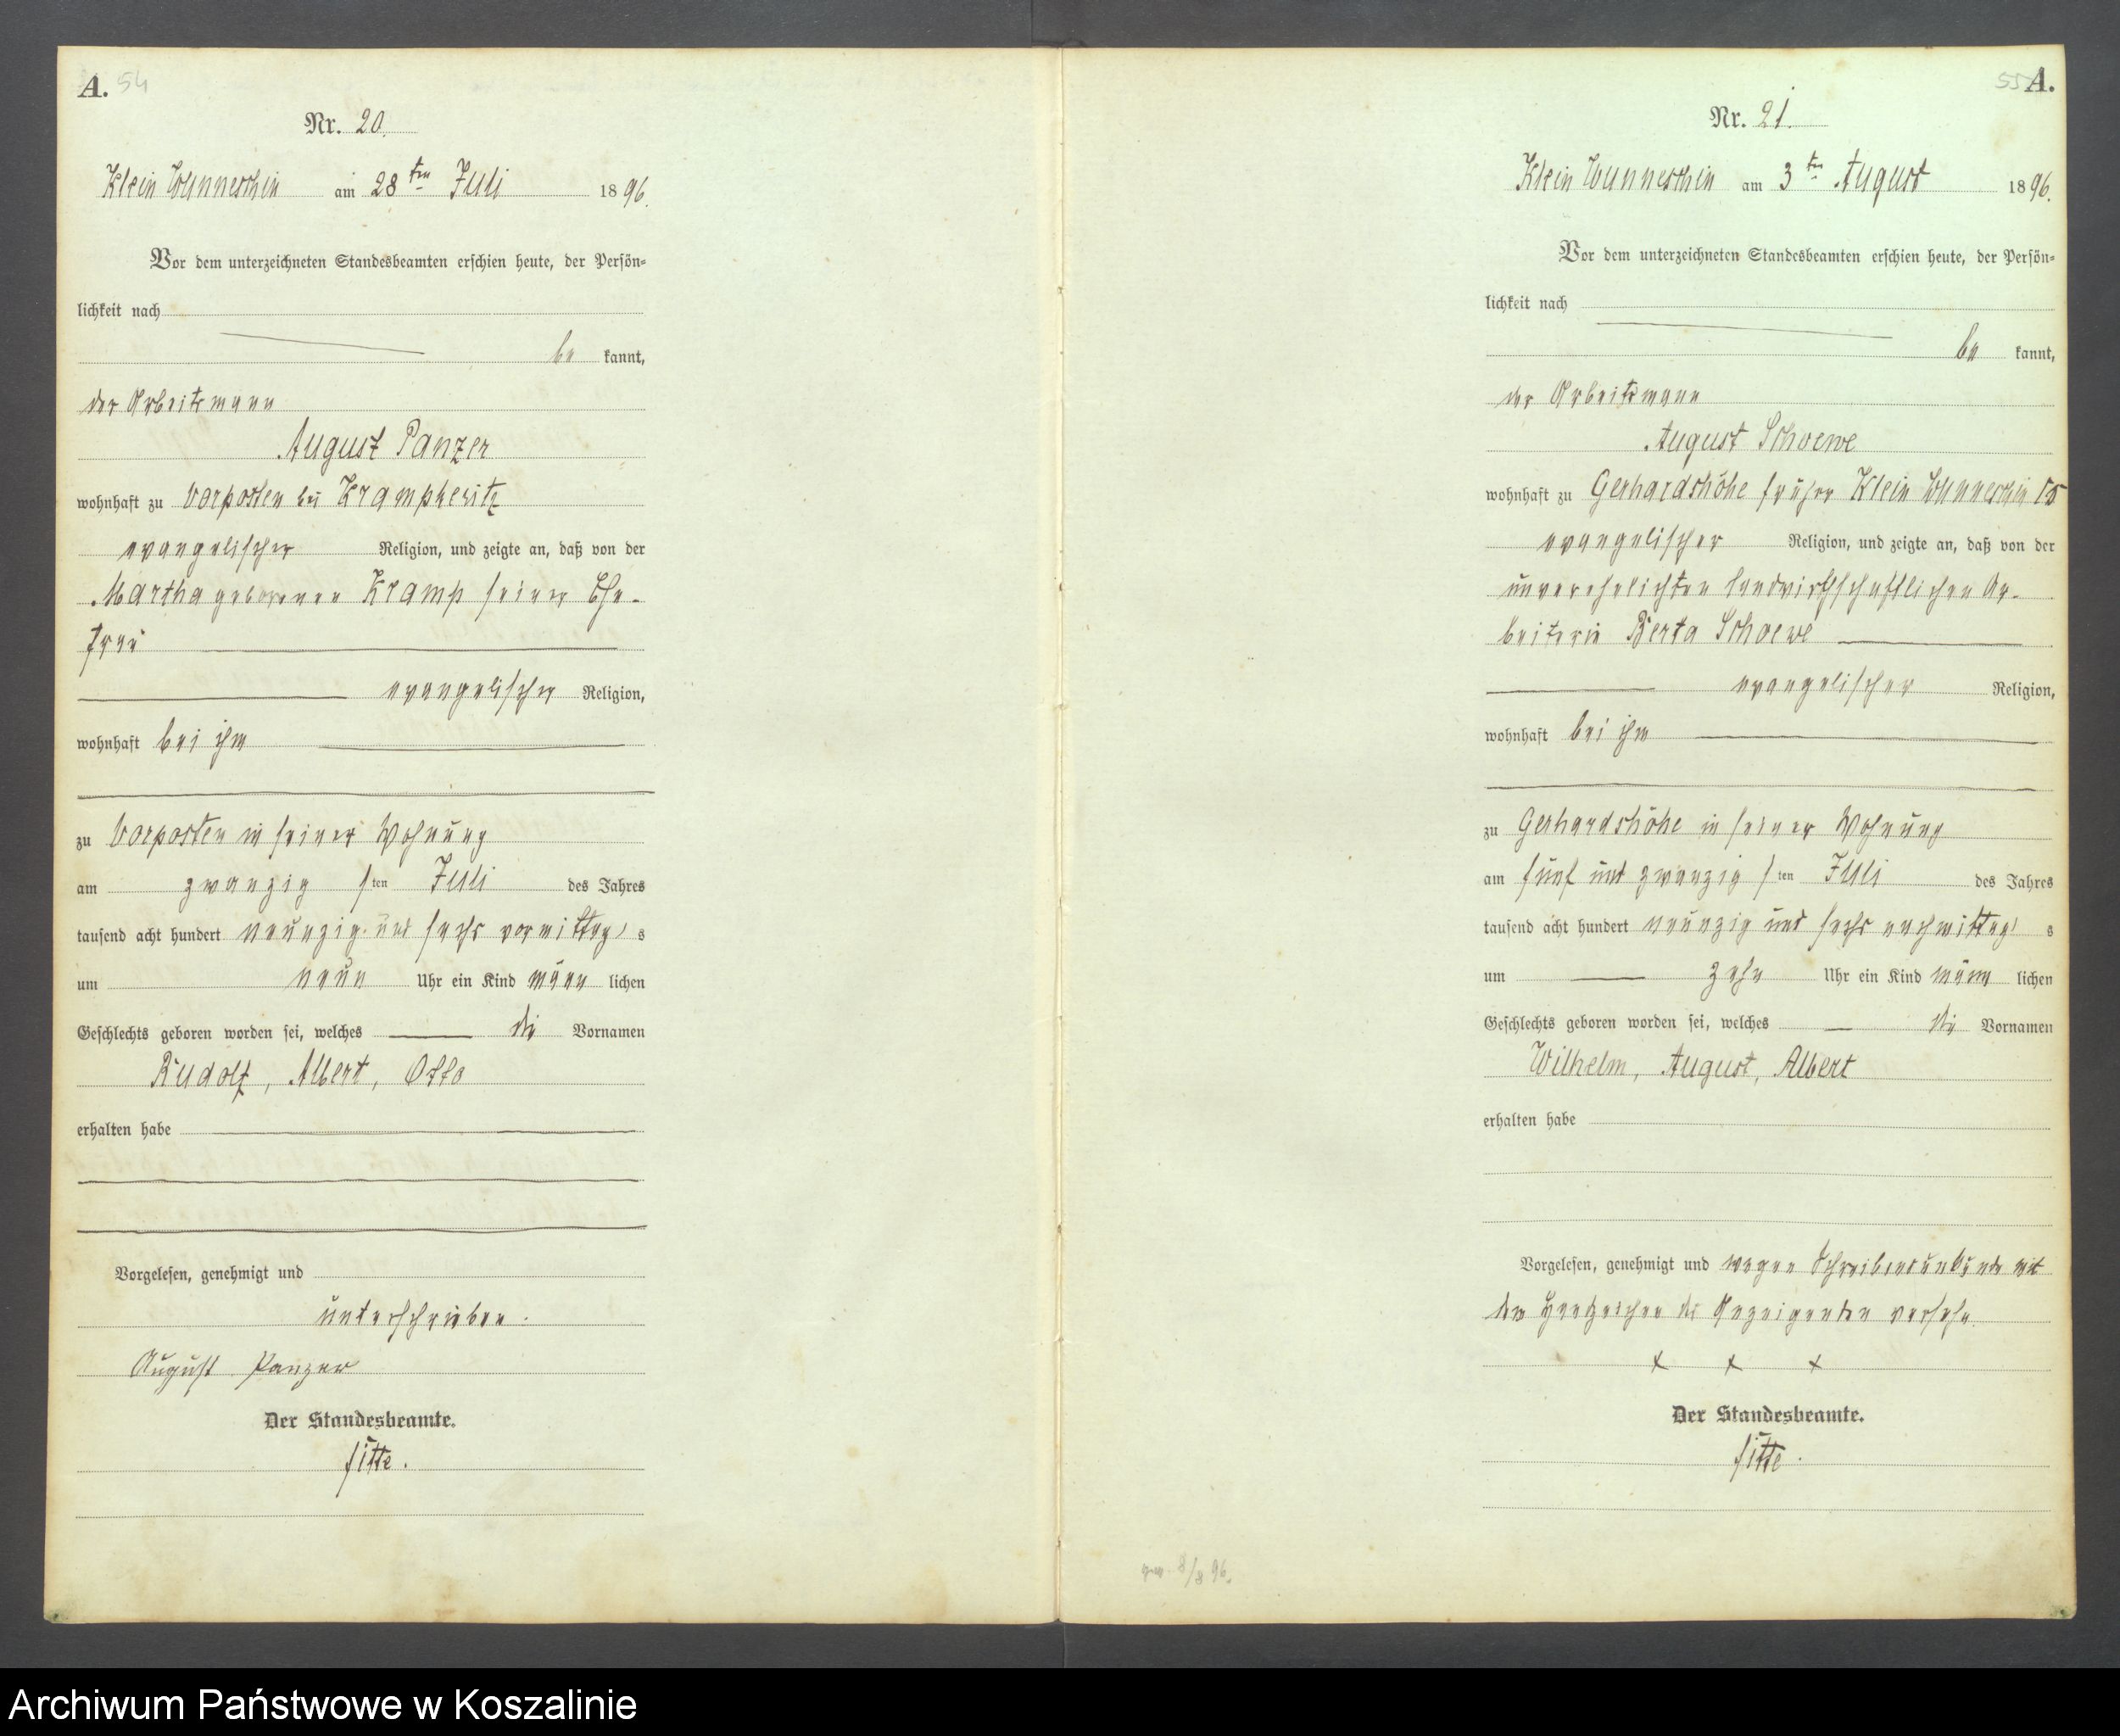 A. 54
Nr. 20.
Klein Wunneschin am 28ten Juli 1896.
Vor dem unterzeichneten Standesbeamten erschien heute, der Persön=
lichkeit nach
be kannt,
der Arbeitsmann
August Panzer
wohnhaft zu Vorposten bei Krampkewitz
evangelischer Religion, und zeigte an, daß von der
Martha geborenen Kramp seiner Ehe-
frau
evangelischer Religion,
wohnhaft bei ihm
zu Vorposten in seiner Wohnung
am zwanzig sten Juli des Jahres
tausend acht hundert neunzig und sechs vormittags
um neun Uhr ein Kind männ lichen
Geschlechts geboren worden sei, welches die Vornamen
Rudolf, Albert, Otto
erhalten habe
Vorgelesen, genehmigt und
unterschrieben.
August Panzer
Der Standesbeamte.
55 A.
Nr. 21.
Klein Wunneschin am 3ten August 1896.
Vor dem unterzeichneten Standesbeamten erschien heute, der Persön=
lichkeit nach
be kannt,
der Arbeitsmann
August Schoewe
wohnhaft zu Gerhardshöhe früher Klein Wunneschin
evangelischer Religion, und zeigte an, daß von der
unverehelichten landwirthschaftlichen Ar-
beiterin Berta Schoewe
evangelischer Religion,
wohnhaft bei ihm
zu Gerhardshöhe in seiner Wohnung
am fünf und zwanzig sten Juli des Jahres
tausend acht hundert neunzig und sechs nachmittags
um zehn Uhr ein Kind männ lichen
Geschlechts geboren worden sei, welches die Vornamen
Wilhelm, August, Albert
erhalten habe
Vorgelesen, genehmigt und wegen Schreibensunkunde mit
dem Handzeichen des Anzeigenden versehn
x x x
Der Standesbeamte.
8/8 96.
Archiwum Państwowe w Koszalinie